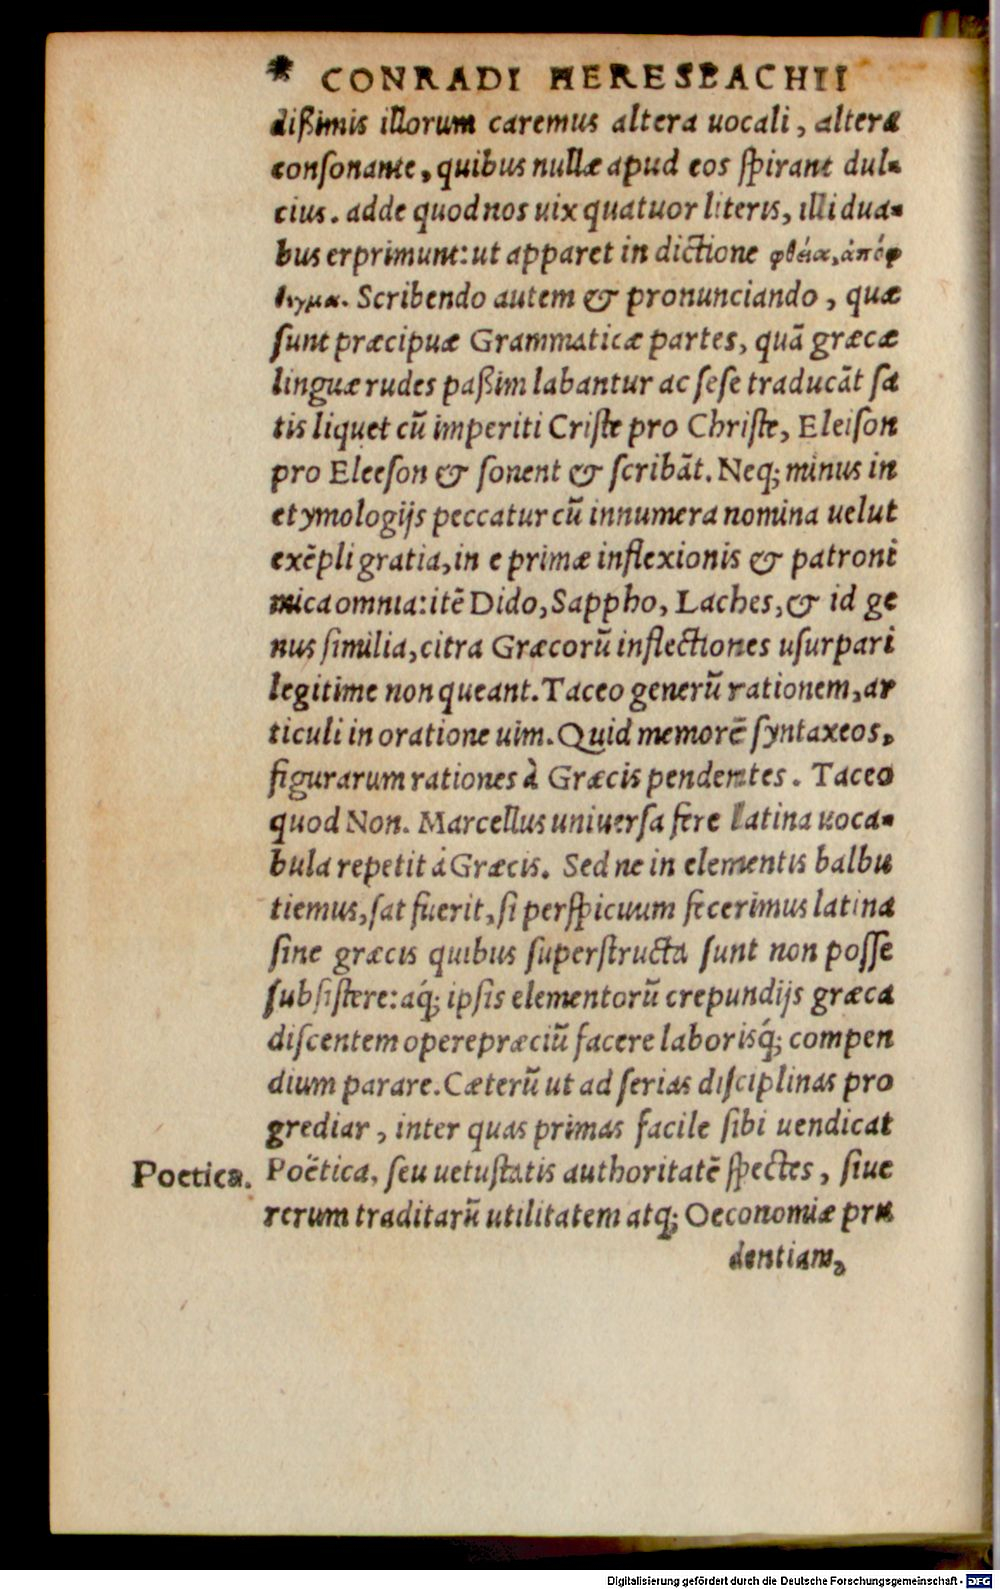 * CONRADI HERESBACHII
dißimis illorum caremus altera uocali, altera
consonante, quibus nullæ apud eos spirant dul-
cius. adde quod nos uix quatuor literis, illi dua-
bus exprimunt: ut apparet in dictione φθεία, ἀπόφ
θεγμα. Scribendo autem & pronunciando, quæ
sunt præcipuæ Grammaticæ partes, quã græcæ
linguæ rudes paßim labantur ac sese traducãt sa
tis liquet cũ imperiti Criste pro Christe, Eleison
pro Eleeson & sonent & scribãt. Neq; minus in
etymologijs peccatur cũ innumera nomina uelut
exẽpli gratia, in e primæ inflexionis & patroni
mica omnia: itẽ Dido, Sappho, Laches, & id ge
nus similia, citra Græcorũ inflectiones usurpari
legitime non queant. Taceo generũ rationem, ar
ticuli in oratione uim. Quid memorẽ syntaxeos,
figurarum rationes à Græcis pendentes. Taceo
quod Non. Marcellus uniuersa fere latina uoca-
bula repetit à Græcis. Sed ne in elementis balbu
tiemus, sat fuerit, si perspicuum fecerimus latina
sine græcis quibus superstructa sunt non posse
subsistere: aq́; ipsis elementorũ crepundijs græca
discentem operepræciũ facere laborisq́; compen
dium parare. Cæterũ ut ad serias disciplinas pro
grediar, inter quas primas facile sibi uendicat
Poetica. Poëtica, seu uetustatis authoritatẽ spectes, siue
rerum traditarũ utilitatem atq; Oeconomiæ pru
dentiam,
Digitalisierung gefördert durch die Deutsche Forschungsgemeinschaft - DFG